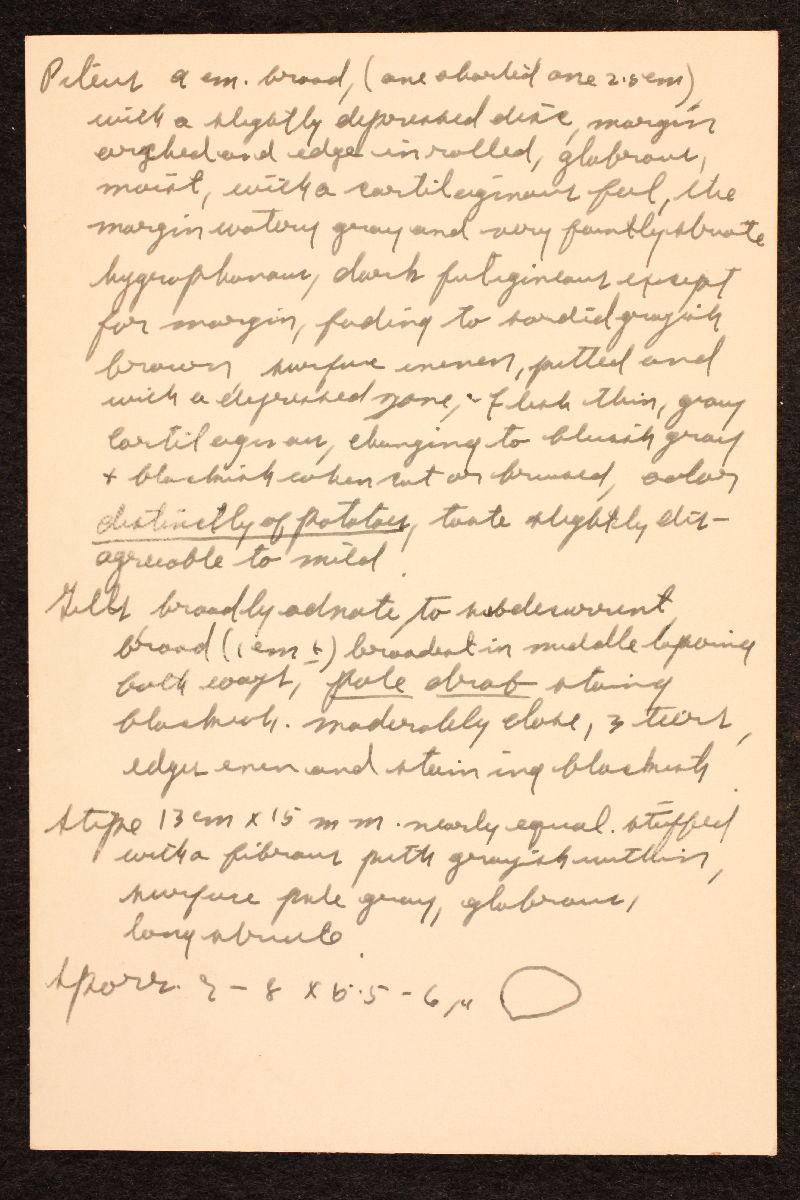 Pileus 9 cm. broad, (one aborted one 2.5 cm)
with a slightly depressed disc, margin
arched and edge inrolled, glabrous,
moist, with a cartilaginous feel, the
margin watery gray and very faintly striate
hygrophanous, dark fuligineous except
for margin, fading to sordid grayish
brown surface uneven, pitted and
with a depressed zone, - Flesh thin, gray
Cartilaginous, changing to bluish gray
+ blackish when cut or bruised, odor
distinctly of potatoes, taste slightly dis-
agreeable to mild
Gills broadly adnate to subdecurrent
broad (1 cm ±) broadest in middle tapering
both ways, pale drab staining
blackish. moderately close, 3 tiers,
edges even and staining blackish
Stipe 13 cm x 15 mm. nearly equal. stuffed
with a fibrous pith grayish within,
surface pale gray, glabrous,
long striate
Spores. 7 - 8 x 5.5 - 6 µ